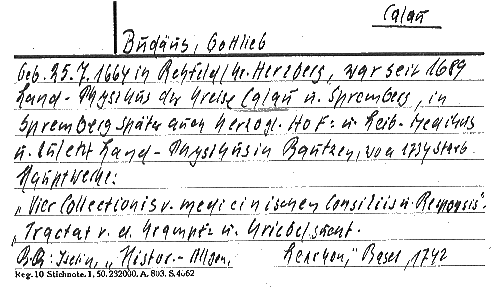 Calau
Budäus, Gottlieb
Geb. 25.7.1664 in Rehfeld/Kr. Herzberg, war seit 1689
Land-Physikus der Kreise Calau u. Spremberg, in
Spremberg später auch Herzogl. Hof- u. Leib-Medikus
u. zuletzt Land-Physikus in Bautzen, wo er 1734 starb.
Hauptwerke:
„Vier Collectionis v. medicinischen Consiliis u. Responsis".
„Tractat v. d. Krampf u. Kriebelkrankt.
B.Q: Iselin, „Histor.-Allgem. Lexicon," Basel, 1742
Reg. 10 Stichnote. 1, 50. 232000. A. 803. S. 4662